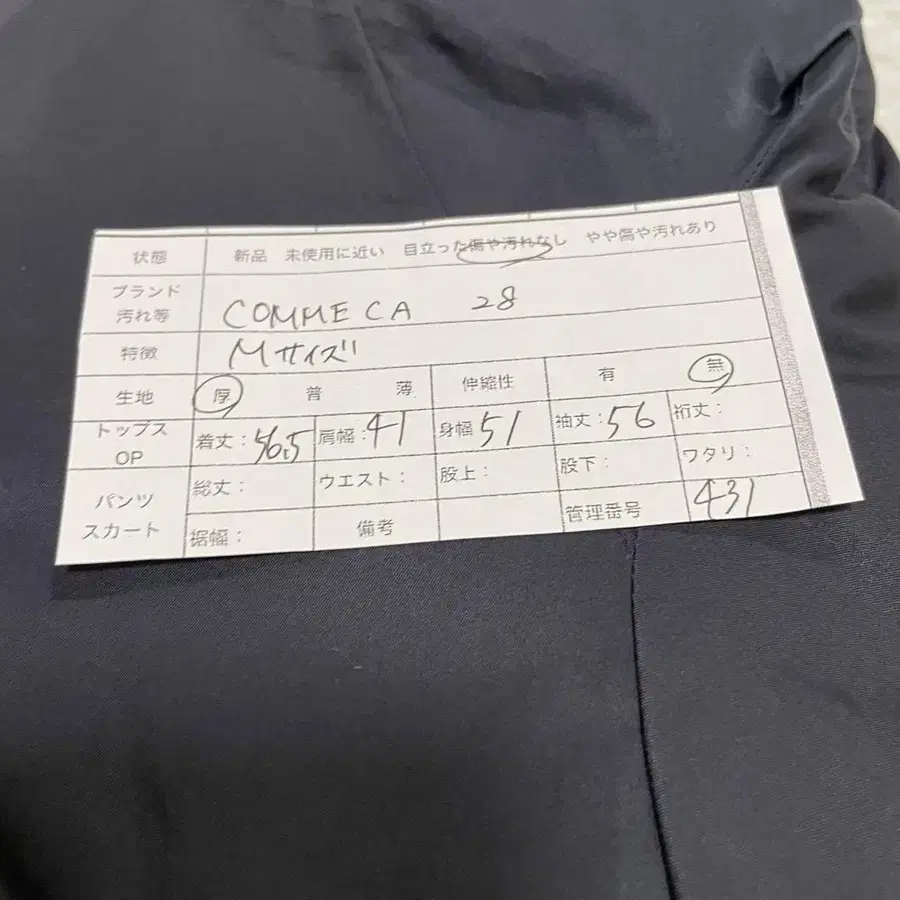 状態 新品 未使用に近い 目立った傷や汚れなし やや傷や汚れあり
ブランド
汚れ等 COMME CA 28
特徴 Mサイズ
生地 厚 普 薄 伸縮性 有 無
トップス
OP 着丈：56.5 肩幅：41 身幅 51 袖丈：56 裄丈：
パンツ
スカート 総丈： ウエスト： 股上： 股下： ワタリ：
裾幅： 備考 管理番号 431